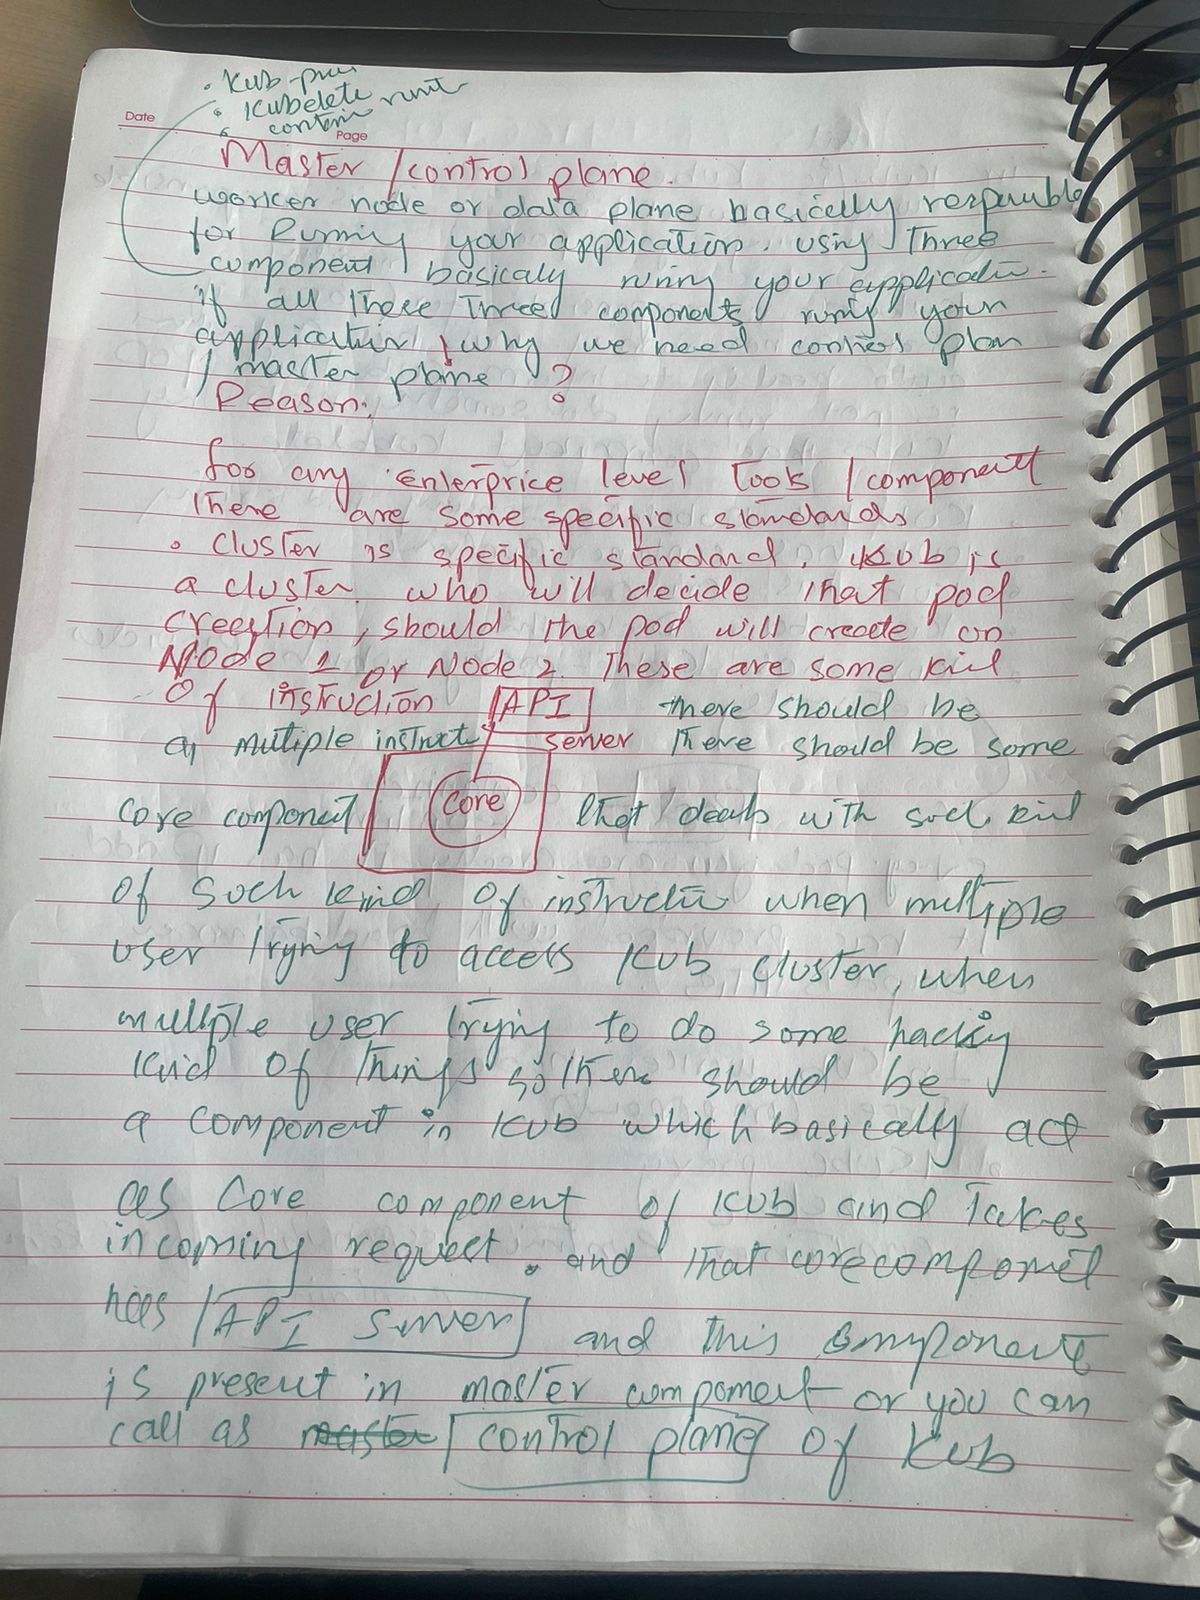 • Kub-
• Kubelete
• contin runt
Date
Page
Master / control plane.
worker node or data plane basically responsible
for Running your application. using Three
component basicaly runing your applicatin.
if all these three components runing your
application, why we need control plan
/ master plane ?
Reason:
for any Enterprice level Tools / component
There are some specific standards
• Cluster is specific standard, Kub is
a cluster, who will decide that pod
creation, should the pod will create on
Node 1 or Node 2. These are some kid
Of instruction API there should be
a multiple instruct server There should be some
core component Core that deals with such kind
of such kind Of instructin when multiple
user trying to access Kub cluster, when
multiple user trying to do some hacky
kind Of Things so there should be
a component in Kub which basically act
as Core component of Kub and Takes
incoming request. and that core component
has API Server and this component
is present in master component or you can
call as master control plane of Kub